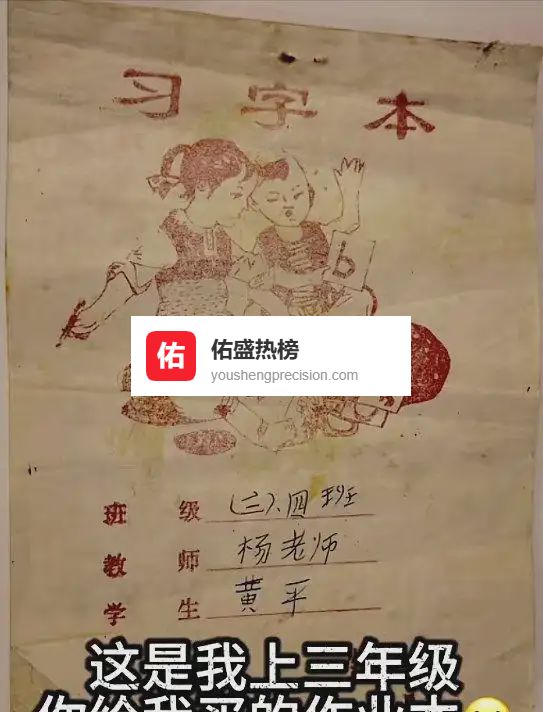 习字本
b
佑 佑盛热榜
youshengprecision.com
班 级 (三)、四 班
教 师 杨老师
学 生 黄平
这是我上三年级
你给我买的作业本